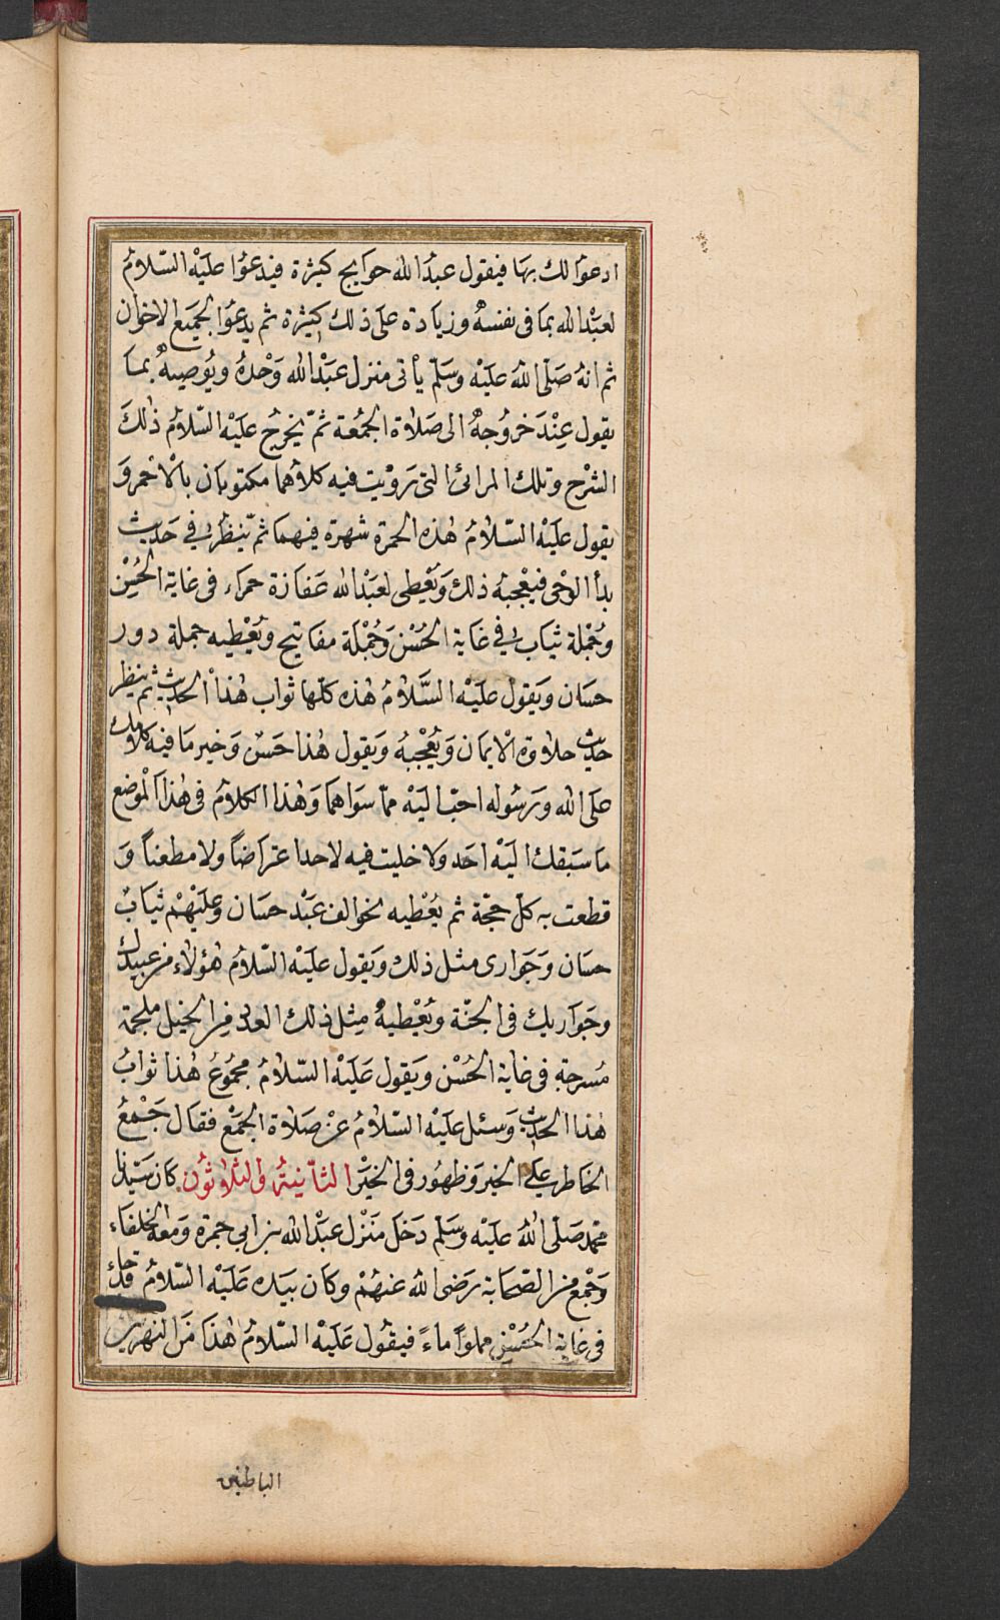 ادعوا لك بها فيقول عبدُ الله حوايج كثيرة فيدعُوا عليْه السّلامُ
لعبْد الله بما فى نفسهُ وزيادة على ذلك كثيرة ثم يدعُوا لجميع الاخوان
ثم انهُ صَلّى اللهُ علَيْه وسَلّم يأتى منزل عَبْد الله وَحْدهُ ويُوصِيهُ بما
يقول عِنْدَ خروُجهُ الى صَلاة الجمُعَة ثمّ يخرجُ علَيْه السّلامُ ذٰلكَ
الشرْح وتلك المرائى التى رَوْيت فيه كلاهما مكتوبان بالاحمر وَ
يقول علَيْه السّلامُ هٰذه الحمرة شهرة فيهما ثمّ ينظرُ فى حَديث
بدأ الوَحْى فيعْجبهُ ذلك وَيُعْطى لعَبْد الله عَفازة حمراء فى غاية الحُسْن
وَجُمْلة ثياب فى غاية الحُسْن وَجُمْلَة مفاتيح ويُعْطيه جملة دور
حسَان وَيَقولُ علَيْه السَّلامُ هٰذه كلّها ثواب هٰذا الحديث ثم ينظر
حديث حلاوة الايمان وَيُعْجبهُ وَيقول هٰذا حَسنٌ وَخير مَا فيه كلامك
علَى الله وَرَسُوله احبّ اليَه ممّا سوَاهما وَهٰذا الكلامُ فى هٰذا الموضع
ما سَبَقك اليْه احَد ولا خليت فيه لاحد اعتراضاً ولا مطعناً وَ
قطعت به كلّ حجّة ثم يُعْطيه نحو الف عَبْد حسَان وعليْهمْ ثيابٌ
حسَان وَجَوارى مثل ذلك وَيقول علَيْه السّلامُ هٰؤلاء من عبيدك
وجَوَاريك فى الجنّة ويُعْطيهُ مِثل ذلك العدد من الخيل ملجمة
مُسرجة فى غاية الحُسْن ويَقول علَيْه السّلامُ مجموُعُ هٰذا ثوابُ
هٰذا الحديث وَسئل علَيْه السّلامُ عنْ صَلاة الجمْع فقال جَمْعُ
الخاطر علَى الخير وَظهُور فى الخَيْر الثّانيةُ والثلاثوُن كان سَيّدنا
محمّد صَلّى اللهُ علَيْه وَسَلّم دَخَل مَنْزل عبْد الله بن ابى جمرة وَمعَه الخلفاء
وَجمْع من الصّحَابة رَضى اللهُ عنهُمْ وكان بيَده علَيْه السّلامُ قدح
فى غاية الحُسْن مملوّاً ماءً فيقُول علَيْه السّلامُ هٰذا منَ النهرين
الباطنين